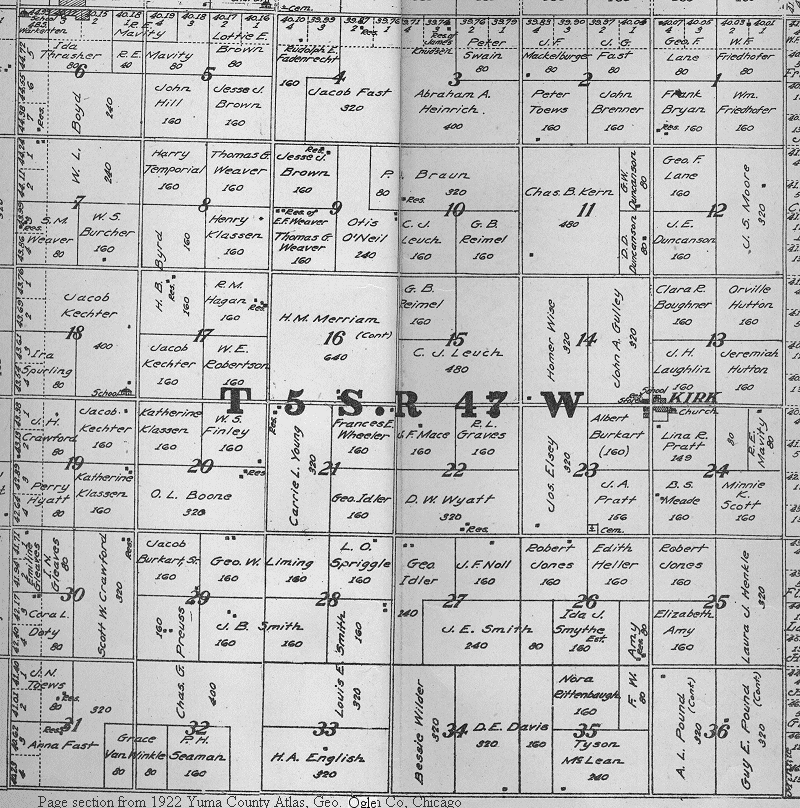 1 Cem.
School
Ida
Thrasher
80
R.E.
40
6
Mavity
Mavity
80
5
Lottie E.
Brown
80
Rudolph E.
Fadenrecht
160
4
Jacob Fast
320
Res. of
James
Knudsen
Peter
Swain
80
3
J.F.
Mackelburge
80
J.G.
Fast
80
2
Geo. F.
Lane
80
W.F.
Friedhofer
80
1
Boyd
240
Res.
John
Hill
160
Jesse J.
Brown
160
Abraham A.
Heinrich
400
Peter
Toews
160
John
Brenner
160
Frank
Bryan
Res. 160
Wm.
Friedhofer
160
W. L.
240
7
Harry
Temporial
160
Thomas G.
Weaver
160
8
Jesse J.
Brown
160
Res.
9
P.
80
Braun
320
Res.
10
Chas. B. Kern
480
11
G.W.
Duncanson
80
Geo. F.
Lane
160
12
J. S. Moore
320
S. M.
Weaver
80
Res.
W. S.
Burcher
160
Byrd
160
Henry
Klassen
160
Res. of
E.F. Weaver
Thomas G.
Weaver
160
Otis
O'Neil
240
C. J.
Leuch
160
G. B.
Reimel
160
D. D.
Duncanson
80
J. E.
Duncanson
160
Jacob
Kechter
400
18
H. B.
Res.
160
R. M.
Hagan
160
Res.
17
H. M. Merriam
16 (Cont)
640
G. B.
Reimel
160
15
C. J. Leuch
480
Homer Wise
320
14
John A. Gulley
320
Clara R.
Boughner
160
Orville
Hutton
160
13
Ira
Spurling
80
School
Jacob
Kechter
160
W. E.
Robertson
160
J. H.
Laughlin
160
Jeremiah
Hutton
160
T 5 S. R 47 W
School
Store
KIRK
Church
J. H.
Crawford
80
Jacob
Kechter
160
19
Katherine
Klassen
160
W. S.
Finley
160
20
Res.
Res.
Carrie L. Young
320
21
Frances E.
Wheeler
160
J. F. Mace
160
R. L.
Graves
160
22
Jos. Elsey
320
23
Albert
Burkart
(160)
Lina R.
Pratt
149
80
R. E.
Mavity
80
24
Perry
Hyatt
80
Katherine
Klassen
160
O. L. Boone
320
Geo. Idler
160
D. W. Wyatt
320
Res.
J. A.
Pratt
156
Cem.
B. S.
Meade
160
Minnie
K.
Scott
160
Emiline
Gleaves
J. N.
Gleaves
80
30
Scott W. Crawford
320
Res.
Jacob
Burkart, Sr.
160
29
Geo. W. Liming
160 160
28
L. O.
Spriggle
160
Geo
Idler
J. F. Noll
160
27
Robert
Jones
160
Edith
Heller
160
26
Robert
Jones
160
25
Laura J. Henkle
320
Cora L.
Doty
80
160
Preuss
J. B. Smith
160 160
Smith
160
140
J. E. Smith
240 80
Ida J.
Smythe
Est.
160
Amy
Res. 80
Elizabeth
Amy
160
J. N.
Toews
80
Res.
320
31
Chas. G.
400
32
Louis E.
320
33
Bessie Wilder
320
34
D. E. Davis
320 160
Nora
Rittenbaugh
160
35
F. W.
80
A. L. Pound
(Cont)
320
36
Guy E. Pound
(Cont)
320
Res.
Anna Fast
Grace
Van Winkle
80 80
P. H.
Seaman
160
H. A. English
320
Tyson
McLean
240
Page section from 1922 Yuma County Atlas, Geo. Ogle Co, Chicago